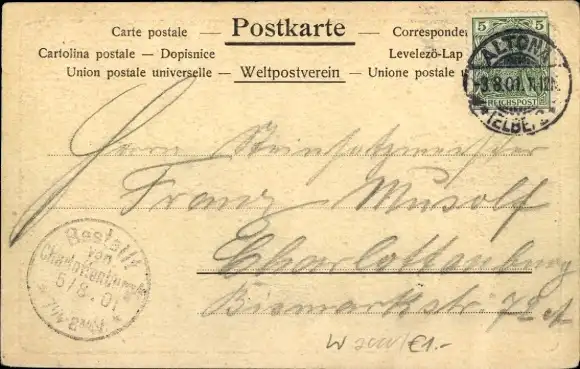 Carte postale — Postkarte — Corresponden
Cartolina postale — Dopisnice Levelező-Lap
Union postale universelle — Weltpostverein — Unione postale u
5 5
REICHSPOST
ALTONA
3.8.01.
(ELBE)
Herrn Steinsetzmeister
Franz Musolf
Charlottenburg
Bismarckstr.
Bestellt
von
Charlottenburg
5/8.01